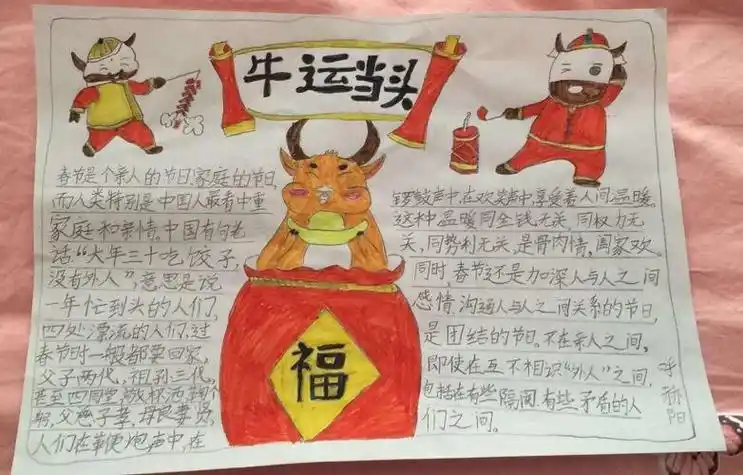 牛运当头
春节是个亲人的节日,家庭的节日,
而人类特别是中国人最看中重
家庭和亲情。中国有句老
话“大年三十吃饺子,
没有外人”,意思是说
一年忙到头的人们,
四处漂流的人们,过
春节时一般都要回家。
父子两代,祖孙三代,
甚至四同堂,敬杯酒,鞠个
躬,父慈子孝,母良妻贤,
人们在鞭炮声中,在
福
锣鼓声中,在欢笑声中,享受着人间温暖。
这种温暖同金钱无关,同权力无
关,同势利无关,是骨肉情,阖家欢。
同时,春节还是加深人与人之间
感情,沟通人与人之间关系的节日,
是团结的节日。不在亲人之间,
即使在互不相识“外人”之间,
包括在有些隔阂,有些矛盾的人
们之间。